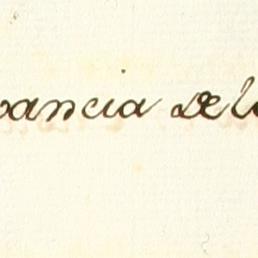 vancia de l